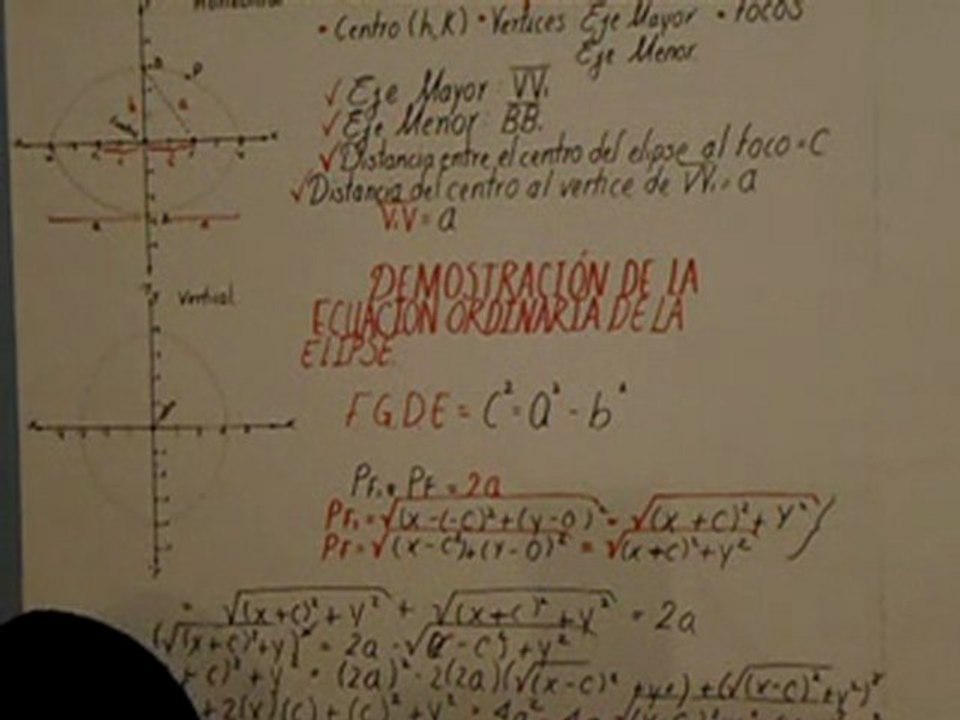 • Centro (h,K) • Vertices Eje Mayor • Focos
Eje Menor
✓ Eje Mayor: VV₁
✓ Eje Menor: BB₁
✓ Distancia entre el centro del elipse al foco = C
✓ Distancia del centro al vertice de VV₁ = a
V₁V = a
Vertical
DEMOSTRACIÓN DE LA
ECUACIÓN ORDINARIA DE LA
ElIPSE.
F.G.D.E = C² = a² - b²
PF₁ + PF = 2a
PF₁ = √(x-(-c)²+(y-0)² = √(x+c)²+y²
PF = √(x-c²)+(y-0)² = √(x+c)²+y²
= √(x+c)²+y² + √(x+c)²+y² = 2a
(√(x+c)²+y)² = 2a - √(x-c²)+y²
+c)²+y² = (2a)² - 2(2a)(√(x-c)²+y²)+(√(x-c)²+y²)²
+2(x)(c)+(c)²+y² = 4a²